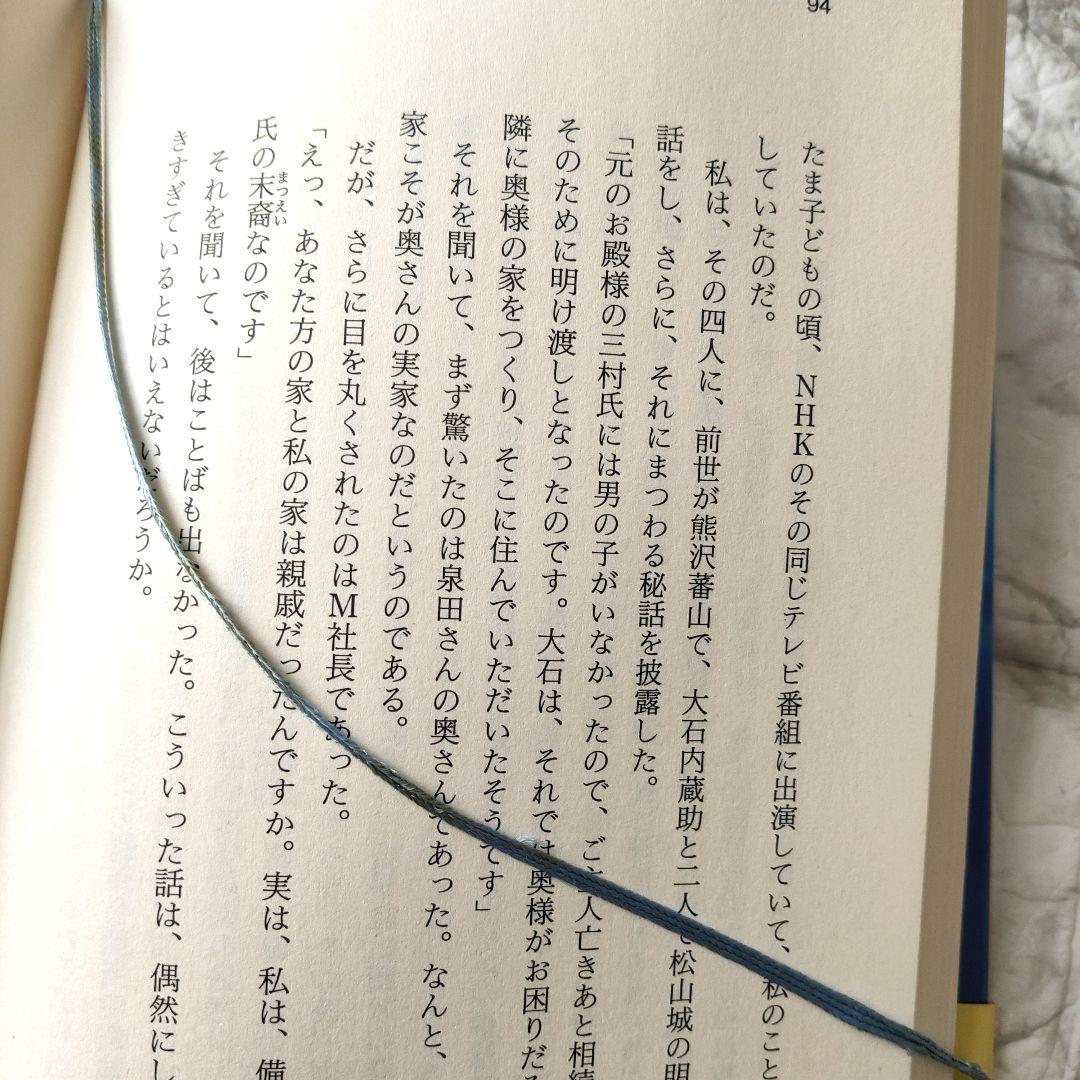 94
たま子どもの頃、NHKのその同じテレビ番組に出演していて、私のこと
していたのだ。
私は、その四人に、前世が熊沢蕃山で、大石内蔵助と二人で松山城の明
話をし、さらに、それにまつわる秘話を披露した。
「元のお殿様の三村氏には男の子がいなかったので、ご主人亡きあと相続
そのために明け渡しとなったのです。大石は、それでは奥様がお困りだろ
隣に奥様の家をつくり、そこに住んでいただいたそうです」
それを聞いて、まず驚いたのは泉田さんの奥さんであった。なんと、
家こそが奥さんの実家なのだというのである。
だが、さらに目を丸くされたのはM社長であった。
「えっ、あなた方の家と私の家は親戚だったんですか。実は、私は、備
氏の末裔なのです」
まつえい
それを聞いて、後はことばも出なかった。こういった話は、偶然にし
きすぎているとはいえないだろうか。